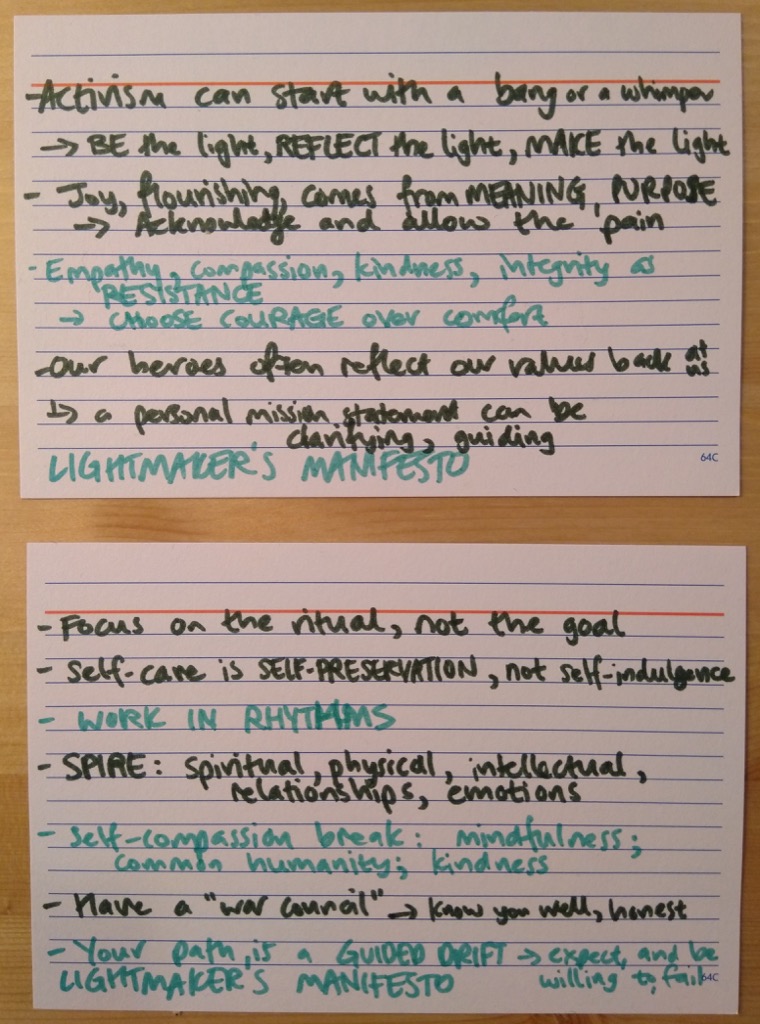 - Activism can start with a bang or a whimper
→ BE the light, REFLECT the light, MAKE the light
- Joy, flourishing, comes from MEANING, PURPOSE
→ Acknowledge and allow the pain
- Empathy, compassion, kindness, integrity as
RESISTANCE
→ CHOOSE COURAGE over comfort
- Our heroes often reflect our values back at us
↳ a personal mission statement can be
clarifying, guiding
LIGHTMAKER'S MANIFESTO
64C
- Focus on the ritual, not the goal
- Self-care is SELF-PRESERVATION, not self-indulgence
- WORK IN RHYTHMS
- SPIRE: spiritual, physical, intellectual,
relationships, emotions
- Self-compassion break: mindfulness;
common humanity; kindness
- Have a "war council" → know you well, honest
- Your path, is a GUIDED DRIFT → expect, and be
willing to, fail
LIGHTMAKER'S MANIFESTO
64C